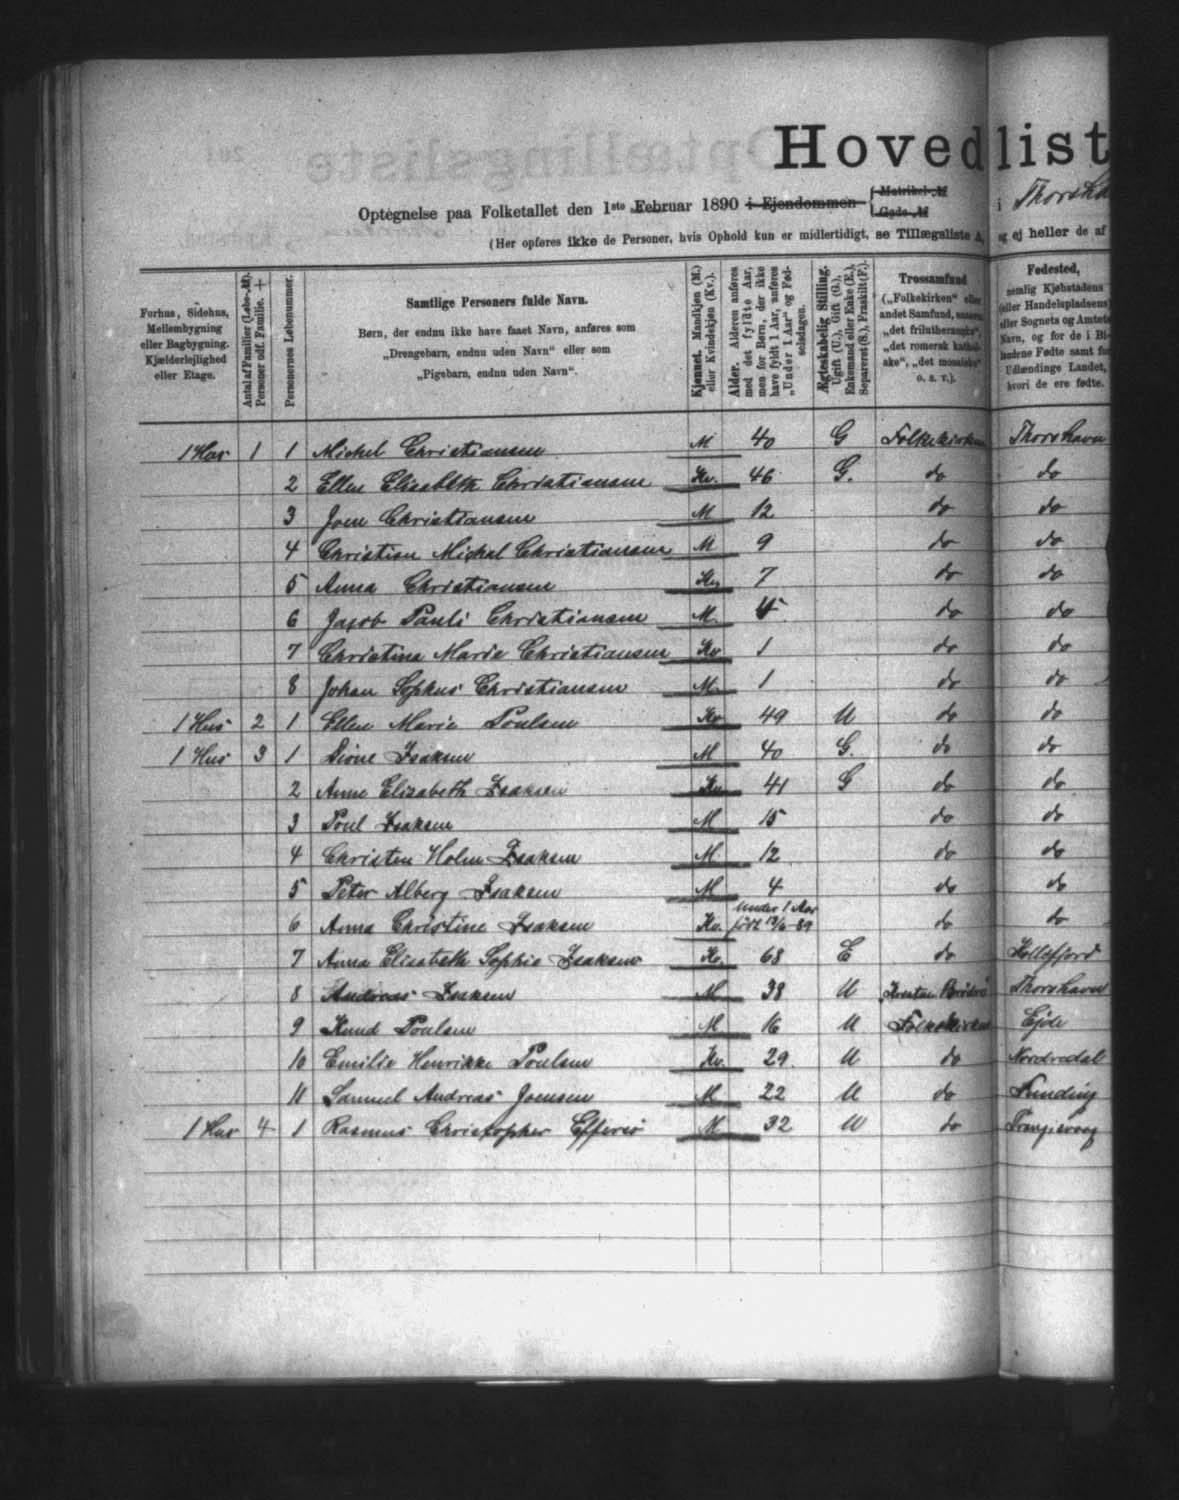 Hovedlist
Optegnelse paa Folketallet den 1ste Februar 1890 i Ejendommen { Matrikel-№ Gade-№ i Thorsha
(Her opføres ikke de Personer, hvis Ophold kun er midlertidigt, se Tillægsliste A, og ej heller de af
Forhus, Sidehus, Mellembygning eller Bagbygning. Kjælderlejlighed eller Etage.
Antal af Familier (Løbe-№). Personer udf. Familie. +
Personernes Løbenummer.
Samtlige Personers fulde Navn.
Børn, der endnu ikke have faaet Navn, anføres som
„Drengebarn, endnu uden Navn“ eller som
„Pigebarn, endnu uden Navn“.
Kjønnet. Mandkjøn (M.) eller Kvindekjøn (Kv.).
Alder. Alderen anføres med det fyldte Aar, men for Børn, der ikke have fyldt 1 Aar, anføres „Under 1 Aar“ og Fødselsdagen.
Ægteskabelig Stilling. Ugift (U.), Gift (G.), Enkemand eller Enke (E.), Separeret (S.), Fraskilt (F.).
Trossamfund („Folkekirken“ eller andet Samfund, „det frilutheranske“, „det romersk „det mosaiske“ o. s. v.).
Fødested, nemlig Kjøbstadens (eller Handelspladsens) eller Sognets og Amtets Navn, og for de i Bi- landene Fødte samt for Udlændinge Landet, hvori de ere fødte.
1 Hus 1 1 Michel Christiansen M 40 G Folkekirken Thorshavn
2 Ellen Elisabeth Christiansen Kv. 46 G. do do
3 Joen Christiansen M 12 do do
4 Christian Michal Christiansen M 9 do do
5 Anna Christiansen Kv 7 do do
6 Jacob Pauli Christiansen M. do do
7 Christina Marie Christiansen Kv 1 do do
8 Johan Sophus Christiansen M. 1 do do
1 Hus 2 1 Ellen Marie Poulsen Kv 49 U do do
1 Hus 3 1 Isaksen M 40 G. do do
2 Anne Elisabeth Isaksen Kv 41 G do do
3 Poul Isaksen M 15 do do
4 Christen Holm Isaksen M. 12 do do
5 Peter Alberg Isaksen M 4 do do
6 Anna Christine Isaksen Kv. under 1 Aar født 89 do do
7 Anna Elisabeth Sophie Isaksen Kv. 68 E do Kollefjord
8 Andreas Isaksen M 38 U Thorshavn
9 Knud Poulsen M 16 U Folkekirken Ejde
10 Emilie Henrikke Poulsen Kv. 29. U do Nordredal
11 Samuel Andreas Joensen M 22 U do Funding
1 Hus 4 1 Rasmus Christopher Effersø M 32 U do Trangisvaag